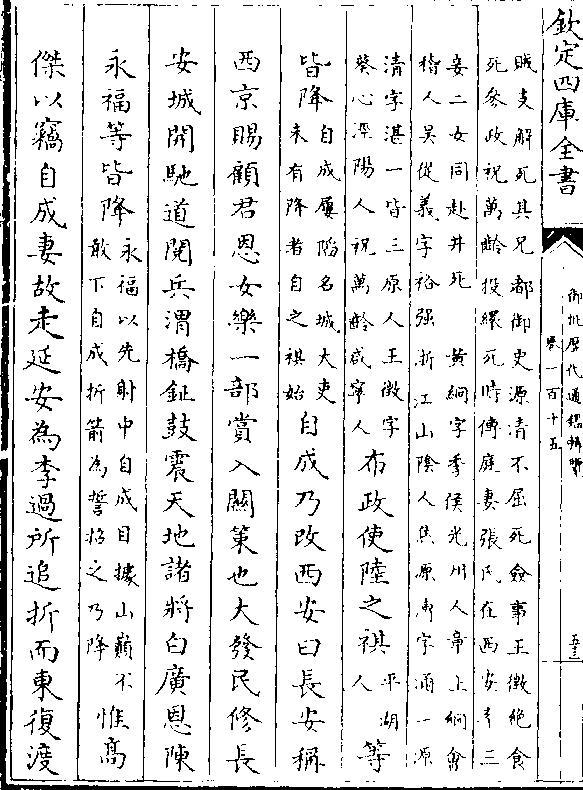 欽定四庫全書
御批歷代通鑑輯覽
卷一百十五
五三
賊支解死其兄都御史源清不屈死僉事王徵絶食
死參政祝萬齡投繯死時傳庭妻張氏在西安率三
妾二女同赴井死 黄絅字季侯光州人章上絅會
稽人吳從義字裕强浙江山陰人焦原溥字涵一源
清字湛一皆三原人王徵字
葵心涇陽人祝萬齡咸寧人
布政使陸之祺平湖人等
皆降自成屢陷名城大吏
未有降者自之祺始
自成乃改西安曰長安稱
西京賜顧君恩女樂一部賞入關策也大發民修長
安城開馳道閱兵渭橋鉦鼓震天地諸將白廣恩陳
永福等皆降永福以先射中自成目據山巔不
敢下自成折箭為誓招之乃降
惟高
傑以竊自成妻故走延安為李過所追折而東復渡